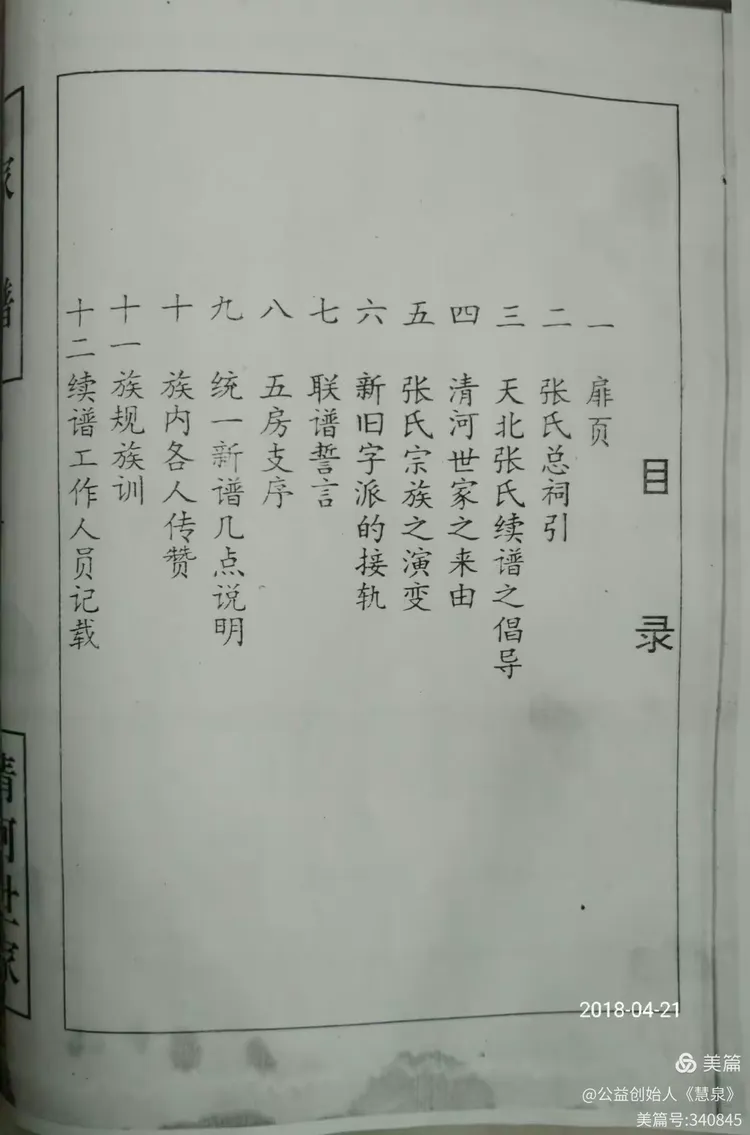 目录
一 扉页
二 张氏总祠引
三 天北张氏续谱之倡导
四 清河世家之来由
五 张氏宗族之演变
六 新旧字派的接轨
七 联谱誓言
八 五房支序
九 统一新谱几点说明
十 族内各人传赞
十一 族规族训
十二 续谱工作人员记载
家谱
清河世家
2018-04-21
美篇
@公益创始人《慧泉》
美篇号:340845